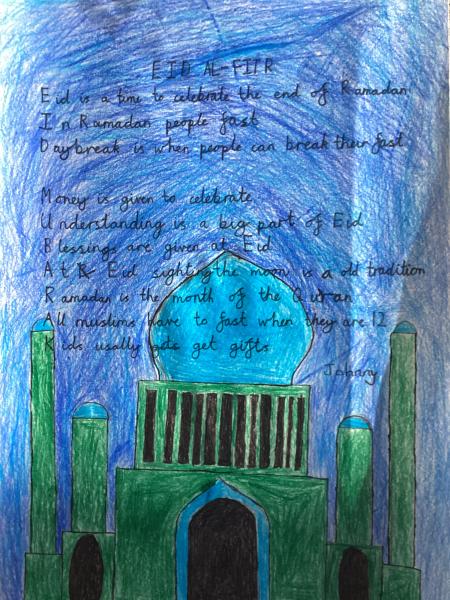 EID AL-FITR
Eid is a time to celebrate the end of Ramadan
In Ramadan people fast
Daybreak is when people can break their fast
Money is given to celebrate
Understanding is a big part of Eid
Blessings are given at Eid
At Eid sighting the moon is a old tradition
Ramadan is the month of the Quran
All muslims have to fast when they are 12
Kids usally gets get gifts
Johnny